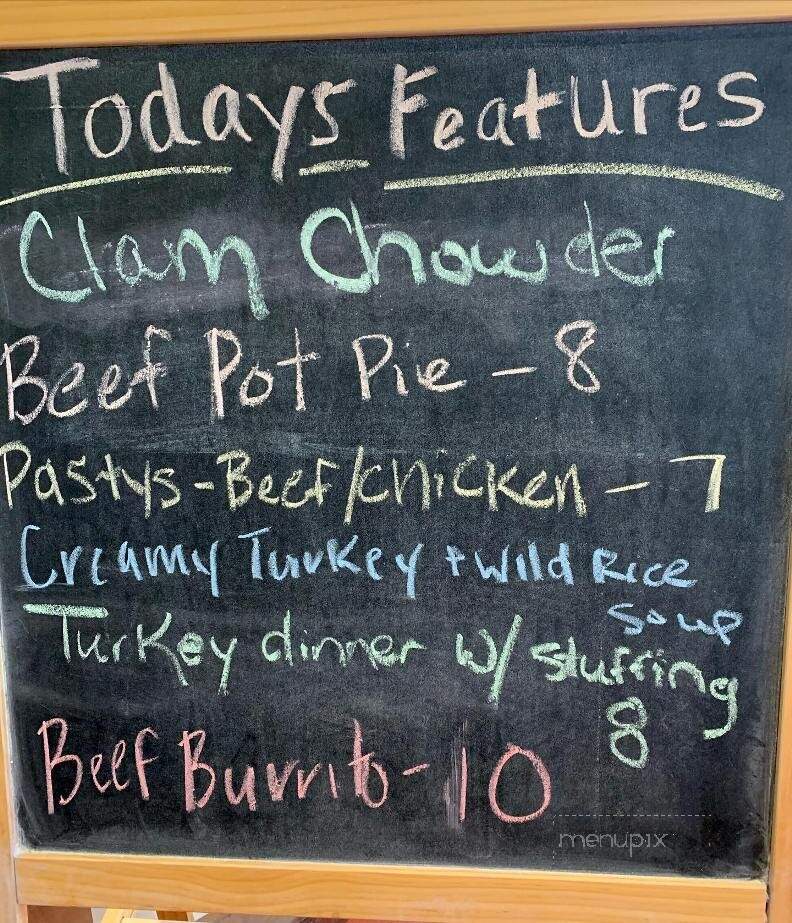 Todays Features
Clam Chowder
Beef Pot Pie - 8
Pastys - Beef/Chicken - 7
Creamy Turkey + Wild Rice
Soup
Turkey dinner w/ stuffing
8
Beef Burrito - 10
menupix